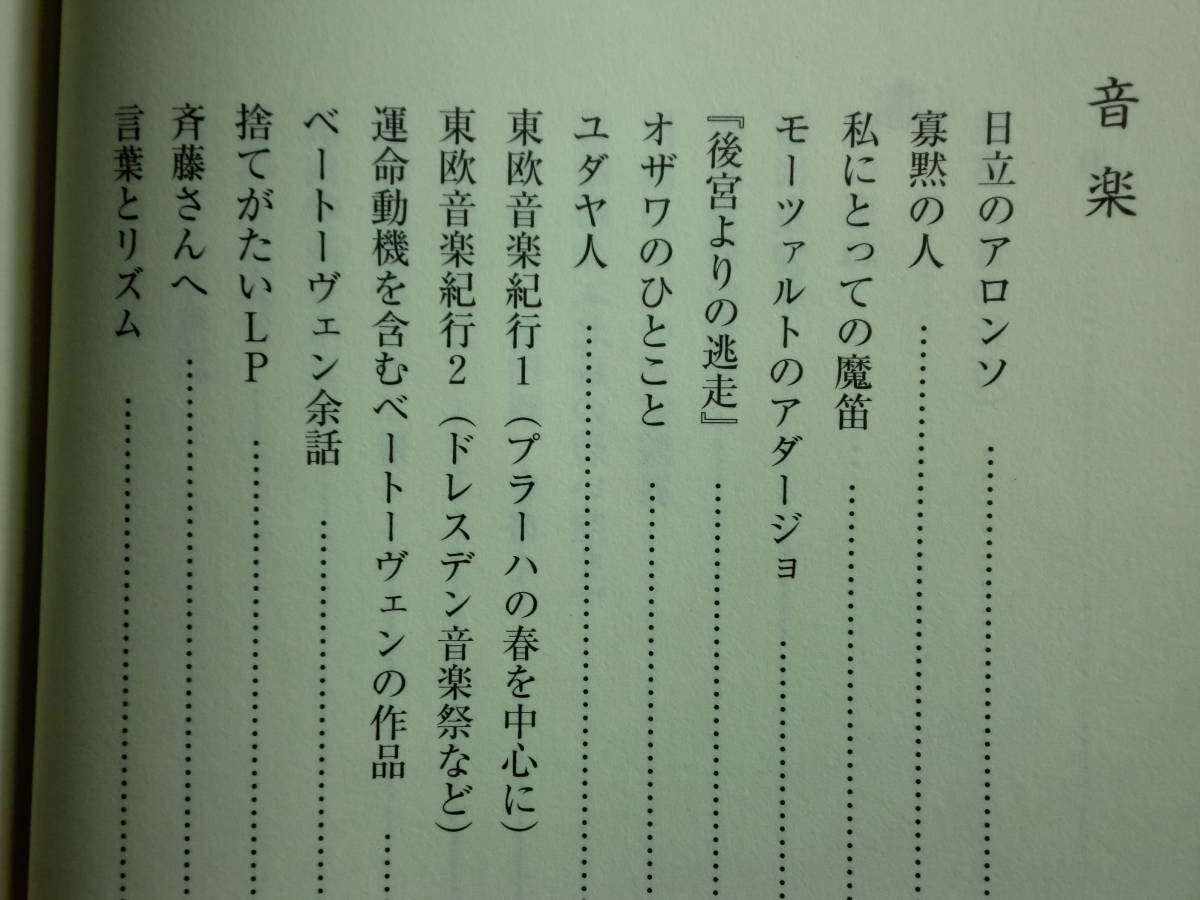 音楽
日立のアロンソ…………………………
寡黙の人…………………………
私にとっての魔笛…………………………
モーツァルトのアダージョ…………………………
『後宮よりの逃走』…………………………
オザワのひとこと…………………………
ユダヤ人…………………………
東欧音楽紀行1（プラーハの春を中心に）
東欧音楽紀行2（ドレスデン音楽祭など）
運命動機を含むベートーヴェンの作品……
ベートーヴェン余話…………………………
捨てがたいLP…………………………
斉藤さんへ…………………………
言葉とリズム…………………………